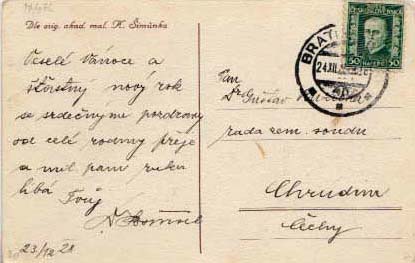 Dle orig. akad. mal. K. Šimůnka
Veselé Vánoce a
šťastný nový rok
se srdečnými pozdravy
od celé rodiny přeje
a milé paní ruku
líbá Tvůj
23/12 28
ČESKOSLOVENSKO
50 50
BRATI
24.XII.
Pan
Dr Gustav
rada zem. soudu
Chrudim
Čechy